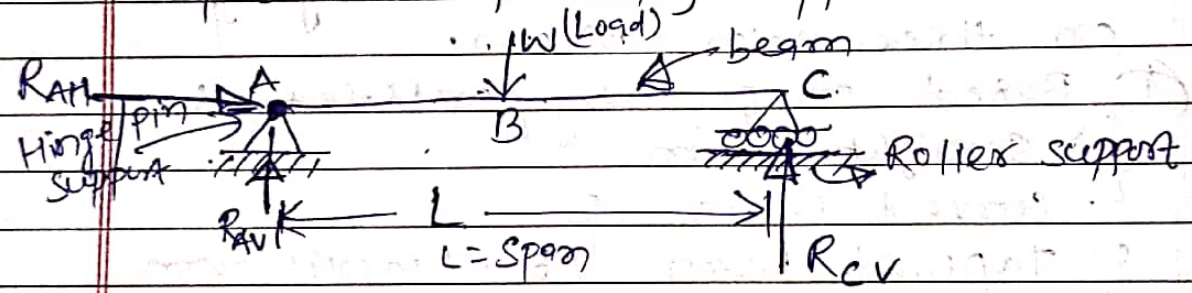 W (Load)
beam
RAH
A
C.
Hinge/pin
support
B
Roller support
RAV
L
L = Span
RCV